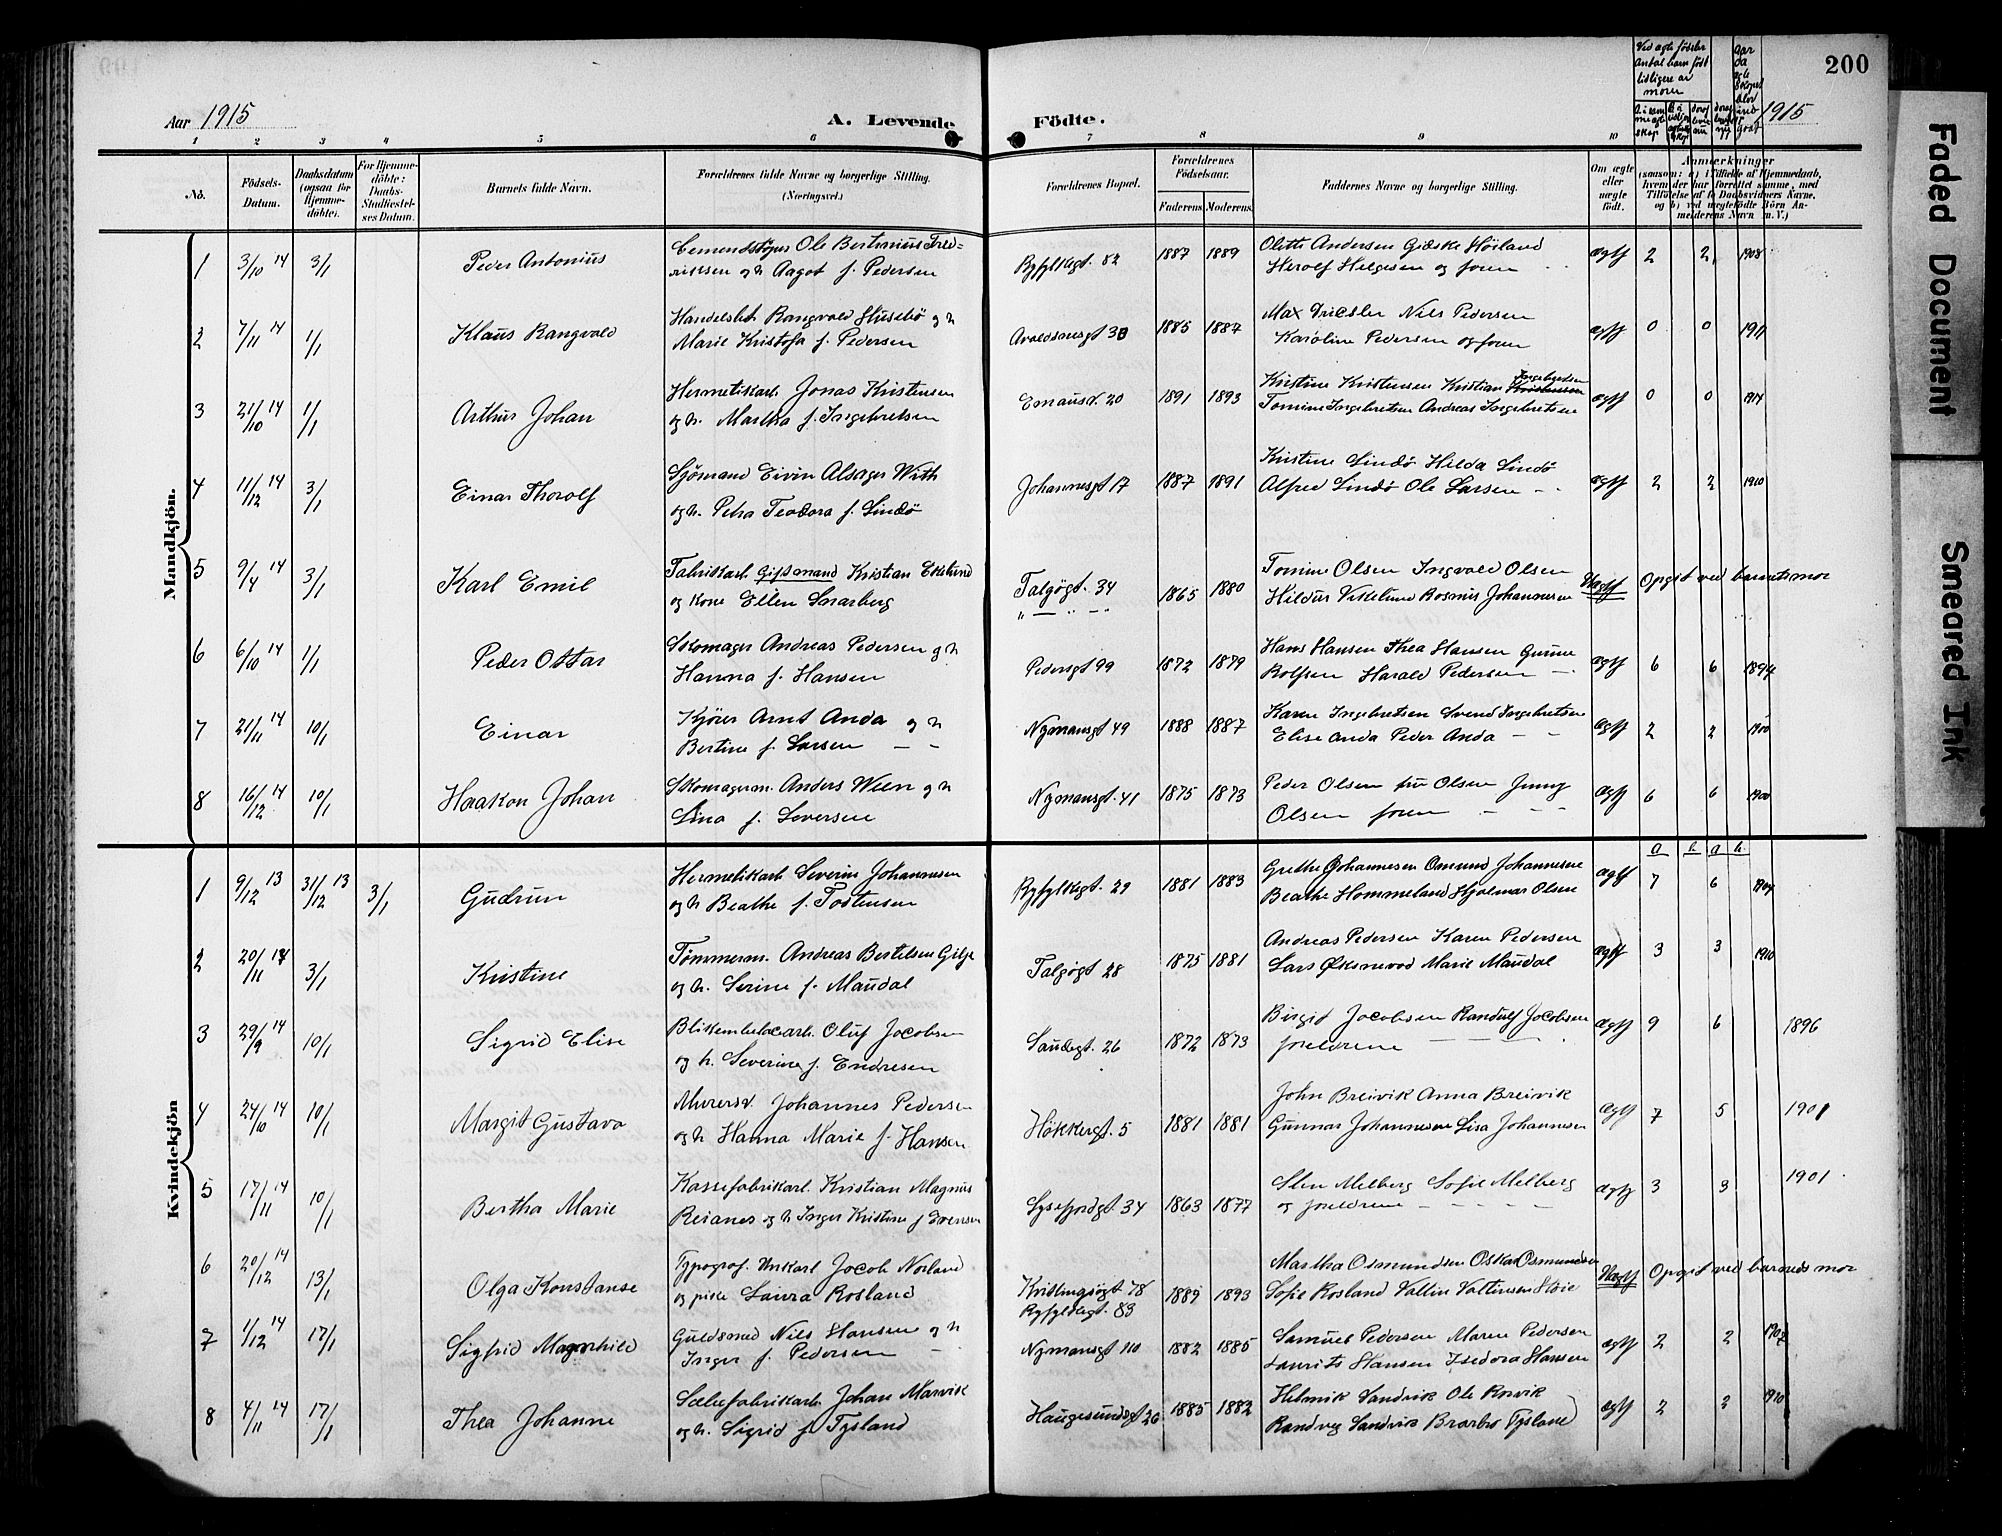 200
Aar 1915
A. Levende Födte.
1915
Ved ægte fødsler antal barn født tidligere av moren
Faded Document
Smeared Ink
1 2 3 4 5 6 7 8 9 10
No.
Födsels-Datum.
Daabsdatum (ogsaa for Hjemme-döbte).
For Hjemme-döbte: Daabs-Stadfæstel-ses Datum.
Barnets fulde Navn.
Forældrenes fulde Navne og borgerlige Stilling. (Næringsvei.)
Forældrenes Bopæl.
Forældrenes Födselsaar.
Faderens. Moderens.
Faddernes Navne og borgerlige Stilling.
Om ægte eller uægte födt.
Anmærkninger (saasom: a) i Tilfælde af Hjemmedaab, hvem der har forrettet samme, med Tilföielse af to Daabsvidners Navne, og b) ved uægtefödte Börn Anmelderens Navn m. V.)
Mandkjön.
1 3/10 14 3/1 Peder Antonius Cemendstøper Ole Bertinius Fred= 1887 1889 Olette Andersen Gidske Høiland ægte 2 2 1908
rikssen og h Aagot f. Pedersen Ryfylkegt. 82 Herolf Helgesen og foren
2 7/11 14 1/1 Klaus Rangvald Handelsbt. Rangvald Husebø og h 1885 1887 Max Driesler Nils Pedersen ægte 0 0 1911
Marie Kristofa f. Pedersen Avaldsnesgt 30 Karoline Pedersen og foren
3 21/10 14 1/1 Arthur Johan Hermetikarb. Jonas Kristensen Emausv. 20 1891 1893 Kristine Kristensen Kristian Ingebretsen ægte 0 0 1914
og h. Martha f. Ingebretsen Tomine Ingebretsen Andreas Ingebretsen
4 11/12 14 3/1 Einar Thorolf Sjømand Eivin Alsager With Johannesgt 17 1887 1891 Kristine Lindø Hilda Lindø ægte 2 2 1910
og h. Petra Teodora f. Lindø Alfred Lindø Ole Larsen
5 9/4 14 3/1 Karl Emil Fabrikarb. Gift mand Kristian Eklund Talgøgt. 34 1865 1880 Tomine Olsen Ingvald Olsen Uægte Opgit ved barnets mor
og kone Ellen Snarberg Hildur Vikelund Rasmus Johannesen
6 6/10 14 1/1 Peder Ottar Skomager Andreas Pedersen og h Pedersgt 99 1872 1879 Hans Hansen Thea Hansen Gunne ægte 6 6 1897
Hanna f. Hansen Rolfsen Harald Pedersen
7 21/11 14 10/1 Einar Kjører Arnt Anda og h Nymansgt 49 1888 1887 Karen Ingebretsen Svend Ingebretsen ægte 2 2 1910
Bertine f. Larsen Elise Anda Peder Anda
8 16/12 14 10/1 Haakon Johan Skomagerm. Anders Ween og h Nymansgt. 41 1875 1873 Peder Olsen fru Olsen Jenny ægte 6 6 1900
Lina f. Seversen Olsen foren
Kvindekjön
a b a b
1 9/12 13 31/12 13 3/1 Gudrun Hermetikarb Severin Johannesen Ryfylkegt. 29 1881 1883 Grethe Johannesen Omund Johannesen ægte 7 6 1904
og h Beathe f. Tostensen Beathe Hommeland Hjalmar Olsen
2 20/11 14 3/1 Kristine Tømmerm. Andreas Bertelsen Gilje Talgøgt 28 1875 1881 Andreas Pedersen Karen Pedersen ægte 3 3 1910
og h. Serine f. Maudal Lars Øksnevod Marie Maudal
3 29/9 14 10/1 Sigrid Elise Blikemb.arb. Oluf Jacobsen Saudegt. 26 1872 1873 Birgit Jacobsen Randulf Jacobsen ægte 9 6 1896
og h. Severine f. Endresen foreldrene
4 24/10 14 10/1 Margit Gustava Murersv. Johannes Pedersen Høkkergt. 5 1881 1881 John Breivik Anna Breivik ægte 7 5 1901
og h Hanna Marie f. Hansen Gunnar Johannesen Lisa Johannesen
5 17/11 14 10/1 Bertha Marie Kassefabrikarb. Kristian Magnus Lysefjordgt 34 1863 1877 Sten Melberg Sofie Melberg ægte 3 3 1901
Reianes og h Inger Kristine f Svensen og foreldrene
6 20/12 14 13/1 Olga Konstanse Typograf. Unkarl Jacob Norland Kvitlingsøgt 78 1889 1893 Martha Osmundsen Oskar Osmundsen Uægte Opgit ved barnets mor
og pike Laura Rosland Ryfylkegt. 83 Sofie Rosland Valtin Valtinsen Skeie
7 1/12 14 17/1 Sigfrid Magnhild Guldsmed Nils Hansen og h Nymansgt 110 1882 1885 Samuel Pedersen Maren Pedersen ægte 2 2 1907
Inger f. Pedersen Laurits Hansen Isedora Hansen
8 4/11 14 17/1 Thea Johanne Sælefabrikarb Johan Marvik Haugesundsgt 26 1885 1882 Helmik Sandvik Ole Rosvik ægte 2 2 1910
og h. Sigrid f Tysland Randvey Sandvik Brarbro Tysland